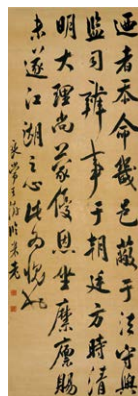 迺者忝命畿邑蔽于法守與
監司辨事于朝廷方時清
明大理尚蒙優恩坐縻廩賜
未遂江湖之心此為愧也